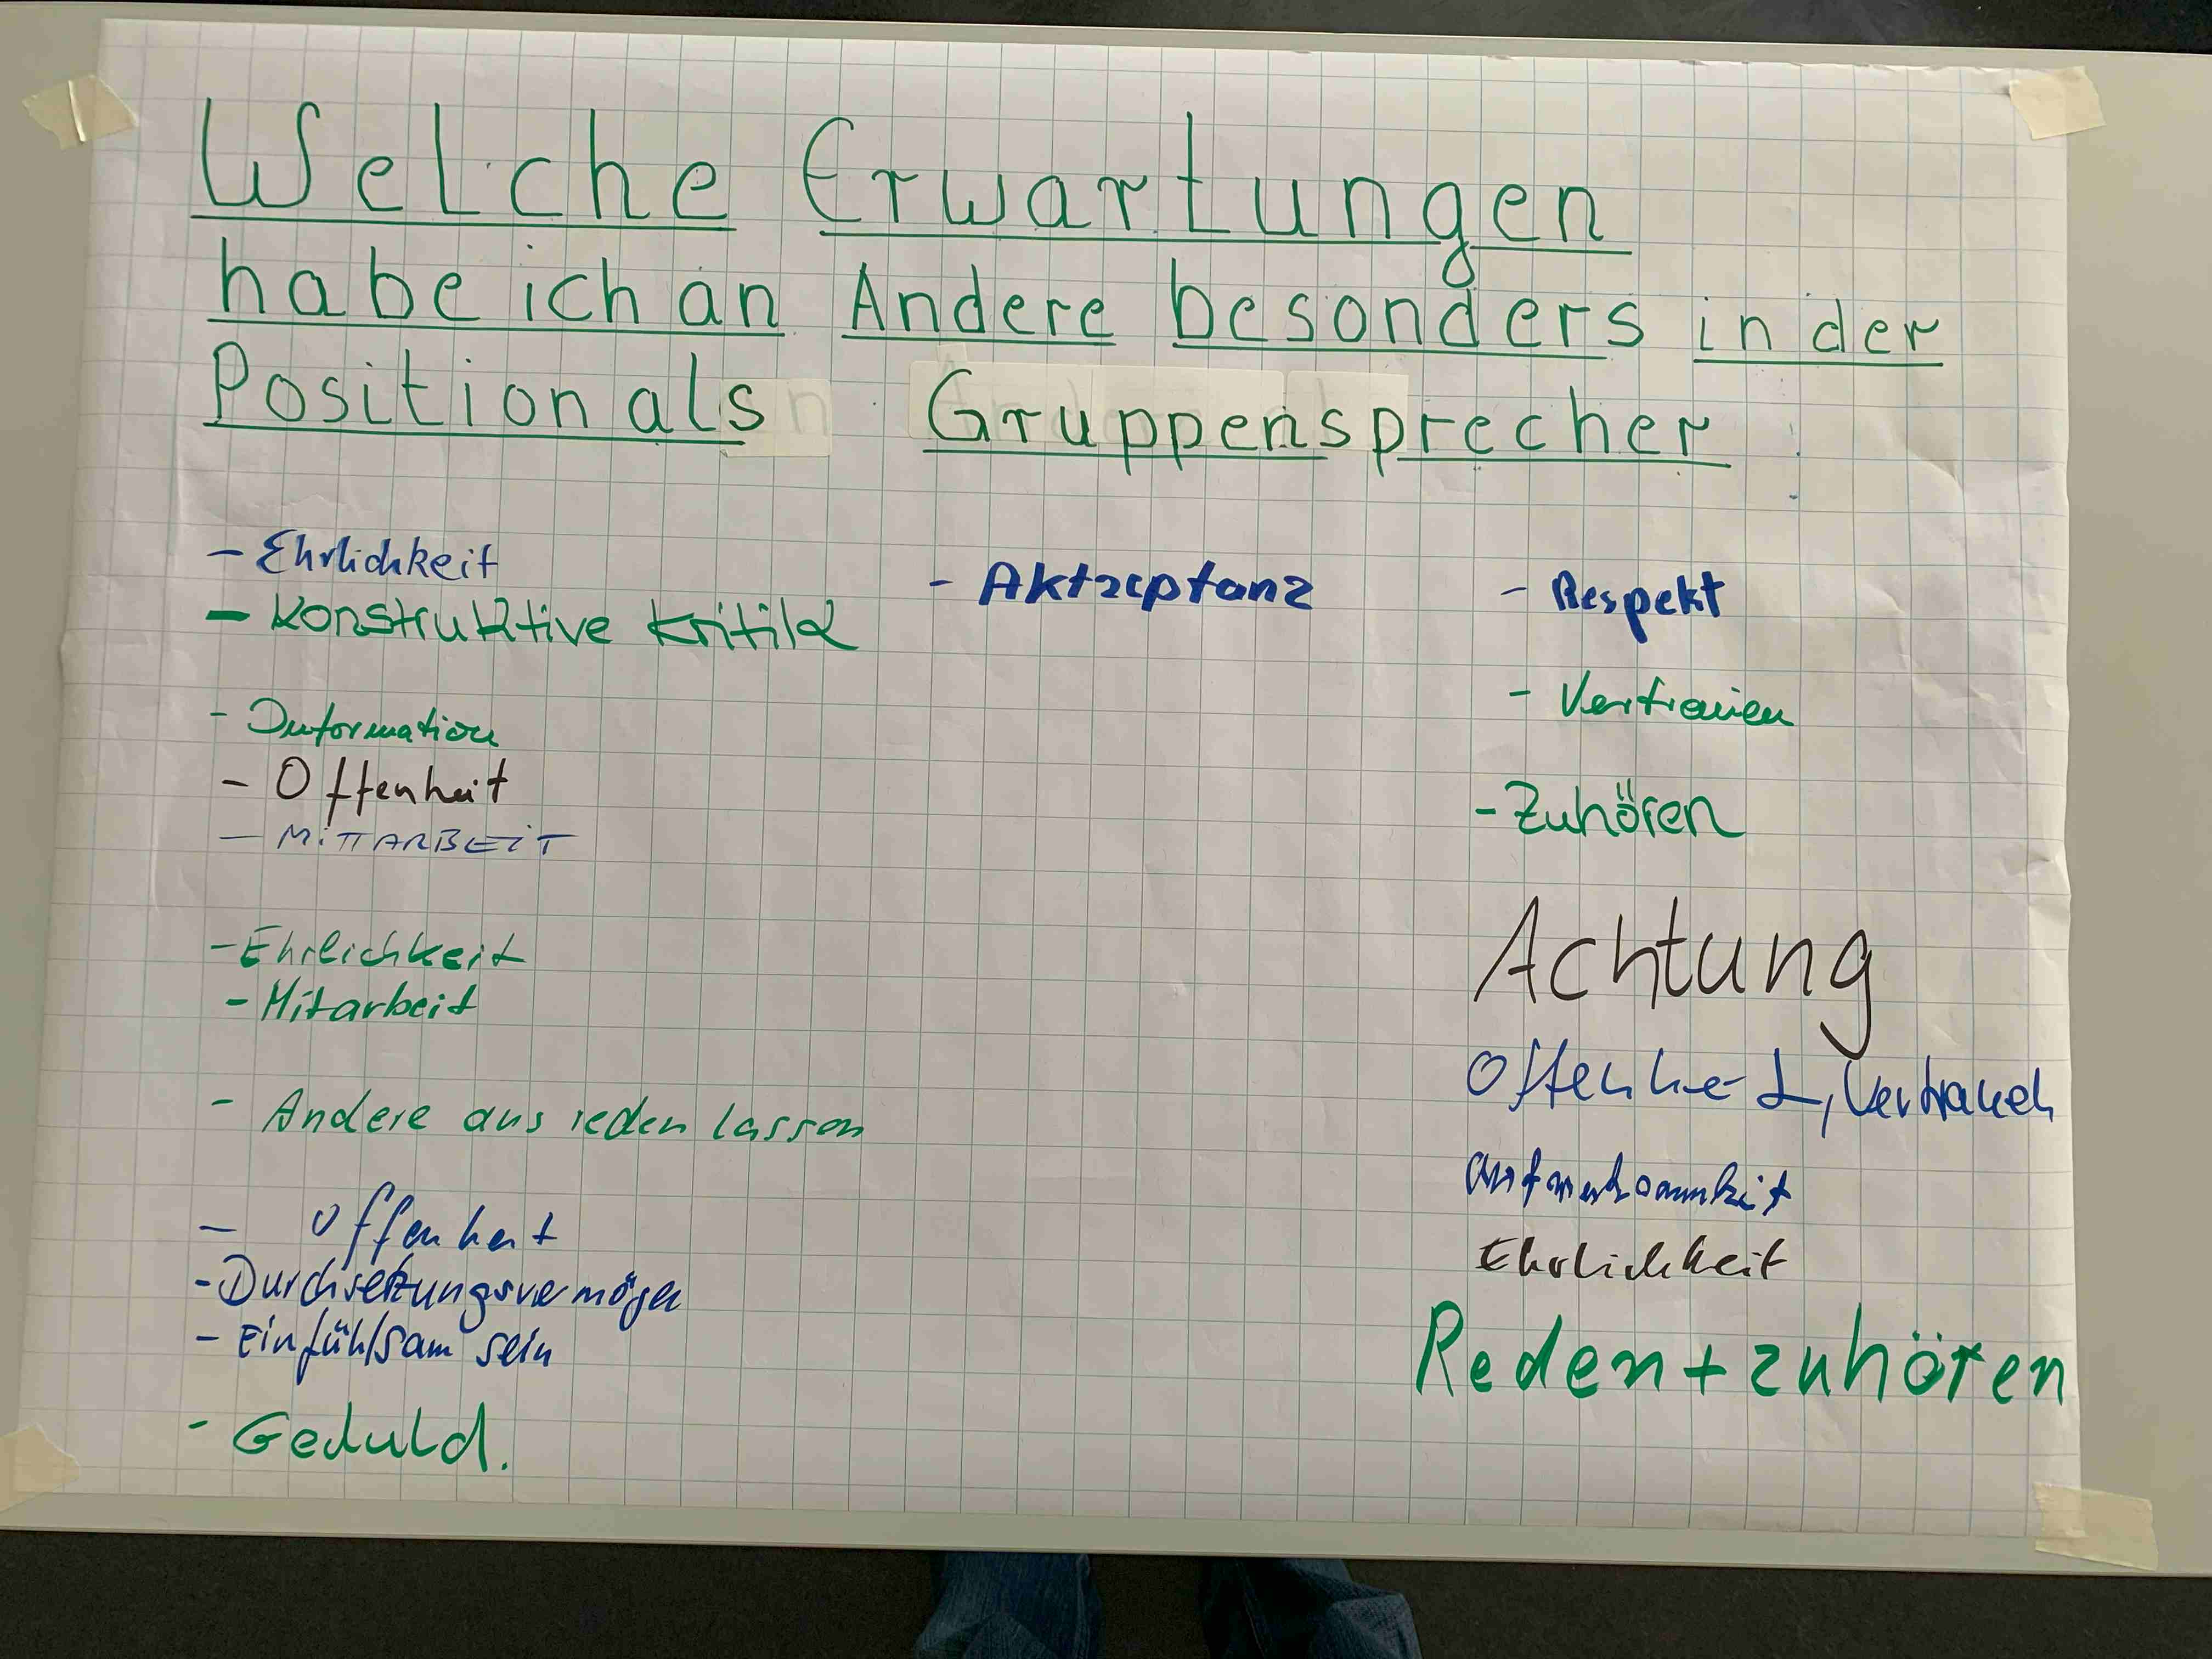 Welche Erwartungen
habe ich an Andere besonders in der
Position als Gruppensprecher
- Ehrlichkeit
- Konstruktive Kritik
- Information
- Offenheit
- MITTARBEIT
- Ehrlichkeit
- Mitarbeit
- Andere aus reden lassen
- Offenheit
- Durchsetzungsvermögen
- Einfühlsam sein
- Geduld.
- Aktzeptanz
- Respekt
- Vertrauen
- Zuhören
Achtung
Offenheit, Vertrauen
Aufmerksamkeit
Ehrlichkeit
Reden + zuhören